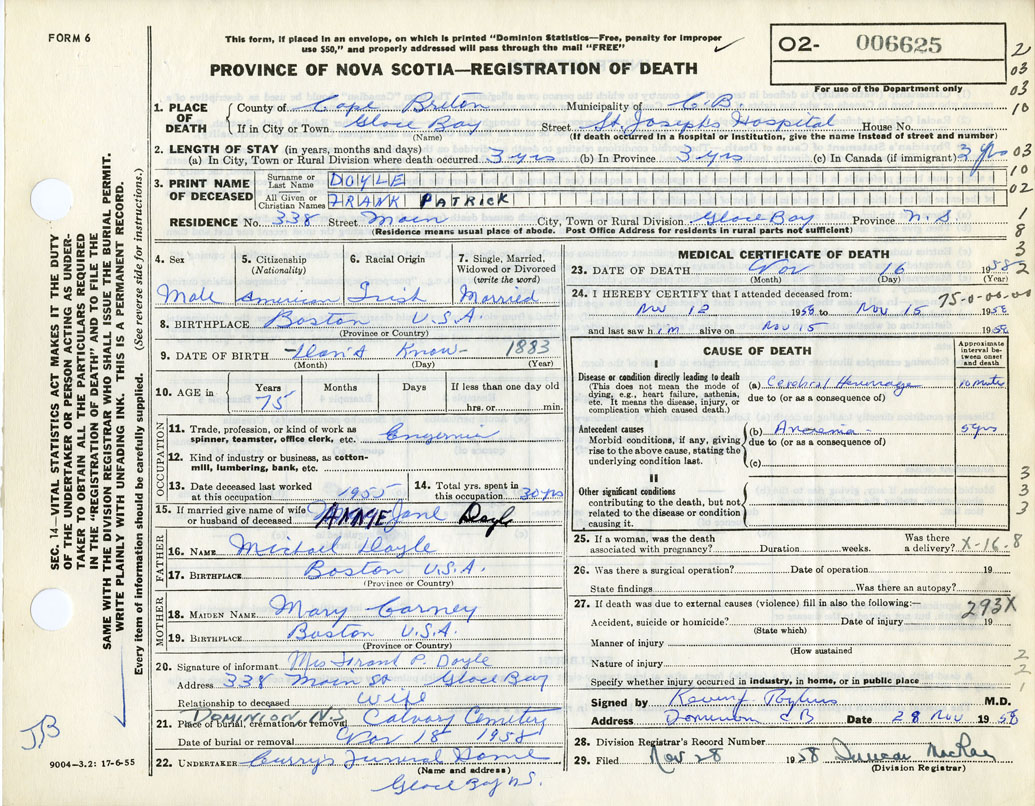 FORM 6
This form, if placed in an envelope, on which is printed "Dominion Statistics—Free, penalty for improper
use $50," and properly addressed will pass through the mail "FREE"
O2- 006625
For use of the Department only
PROVINCE OF NOVA SCOTIA—REGISTRATION OF DEATH
2
03
03
10
03
10
02
1
8
3
2
1. PLACE OF DEATH
County of Cape Breton Municipality of C.B.
If in City or Town Glace Bay Street St. Josephs Hospital House No.
(Name) (If death occurred in a hospital or institution, give the name instead of street and number)
2. LENGTH OF STAY (in years, months and days)
(a) In City, Town or Rural Division where death occurred 3 yrs (b) In Province 3 yrs (c) In Canada (if immigrant) 3 yrs
3. PRINT NAME OF DECEASED
Surname or Last Name DOYLE
All Given or Christian Names FRANK PATRICK
RESIDENCE No. 338 Street Main City, Town or Rural Division Glace Bay Province N.S
(Residence means usual place of abode. Post Office Address for residents in rural parts not sufficient)
4. Sex
Male
5. Citizenship
(Nationality)
American
6. Racial Origin
Irish
7. Single, Married,
Widowed or Divorced
(write the word)
Married
8. BIRTHPLACE Boston U.S.A.
(Province or Country)
9. DATE OF BIRTH Don't Know 1883
(Month) (Day) (Year)
10. AGE in
Years Months Days If less than one day old
75 hrs. or min.
OCCUPATION
11. Trade, profession, or kind of work as
spinner, teamster, office clerk, etc.
12. Kind of industry or business, as cotton-
mill, lumbering, bank, etc.
13. Date deceased last worked
at this occupation 1955
14. Total yrs. spent in
this occupation 30 yrs
15. If married give name of wife
or husband of deceased ANNIE Jane Doyle
FATHER
16. NAME Michael Doyle
17. BIRTHPLACE Boston U.S.A.
(Province or Country)
MOTHER
18. MAIDEN NAME Mary Carney
19. BIRTHPLACE Boston U.S.A.
(Province or Country)
20. Signature of informant Mrs Frank P. Doyle
Address 338 Main St Glace Bay
Relationship to deceased Wife
21. Place of burial, cremation or removal DOMINION N.S. Calvary Cemetery
Date of burial or removal Nov 18 1958
22. UNDERTAKER Curry's Funeral Home
(Name and address)
Glace Bay N.S.
MEDICAL CERTIFICATE OF DEATH
23. DATE OF DEATH Nov 16 1958
(Month) (Day) (Year)
24. I HEREBY CERTIFY that I attended deceased from: 75-0-00-00
Nov 12 1958 to Nov 15 1958
and last saw him alive on Nov 15 1958
CAUSE OF DEATH
Approximate interval between onset and death
I
Disease or condition directly leading to death
(This does not mean the mode of
dying, e.g., heart failure, asthenia,
etc. It means the disease, injury, or
complication which caused death.)
(a) Cerebral Hemorrage 10 mnts
due to (or as a consequence of)
Antecedent causes
Morbid conditions, if any, giving
rise to the above cause, stating the
underlying condition last.
(b) Anaemia 5 yrs
due to (or as a consequence of)
(c)
II
Other significant conditions
contributing to the death, but not
related to the disease or condition
causing it.
3
3
3
25. If a woman, was the death
associated with pregnancy? Duration weeks. Was there
a delivery? X-16-8
26. Was there a surgical operation? Date of operation 19
State findings Was there an autopsy?
27. If death was due to external causes (violence) fill in also the following:— 293X
Accident, suicide or homicide? Date of injury 19
(State which)
Manner of injury
(How sustained
Nature of injury
2
2
1
Specify whether injury occurred in industry, in home, or in public place
Signed by M.D.
Address Dominion CB Date 28 Nov 1958
28. Division Registrar's Record Number
29. Filed Nov 28 1958 Duncan MacRae
(Division Registrar)
SEC. 14—VITAL STATISTICS ACT MAKES IT THE DUTY
OF THE UNDERTAKER OR PERSON ACTING AS UNDER-
TAKER TO OBTAIN ALL THE PARTICULARS REQUIRED
IN THE "REGISTRATION OF DEATH" AND TO FILE THE
SAME WITH THE DIVISION REGISTRAR WHO SHALL ISSUE THE BURIAL PERMIT.
WRITE PLAINLY WITH UNFADING INK. THIS IS A PERMANENT RECORD.
Every item of information should be carefully supplied. (See reverse side for instructions.)
JB
9004—3.2: 17-6-55